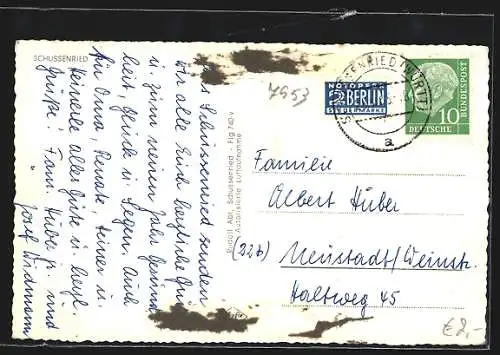 SCHUSSENRIED
Aus Schussenried senden
wir alle Euch herzliche Grüße
u. zum neuen Jahr Gesund-
heit, Glück u. Segen. Auch
an Oma, Renate, Heiner u.
alles Gute u. herzl.
Grüße! Fam. Huber jr. und
Josef Widmann
Rudolf Abt, Schussenried - Flg 740 v
Autobirkliche Luftaufnahme
7953
NOTOPFER
2 BERLIN
STEUERMARKE
SCHUSSENRIED (WÜRTT)
a
10
DEUTSCHE
BUNDESPOST
Familie
Albert Huber
(22b) Neustadt/Weinstr.
Haltweg 45
€2,-